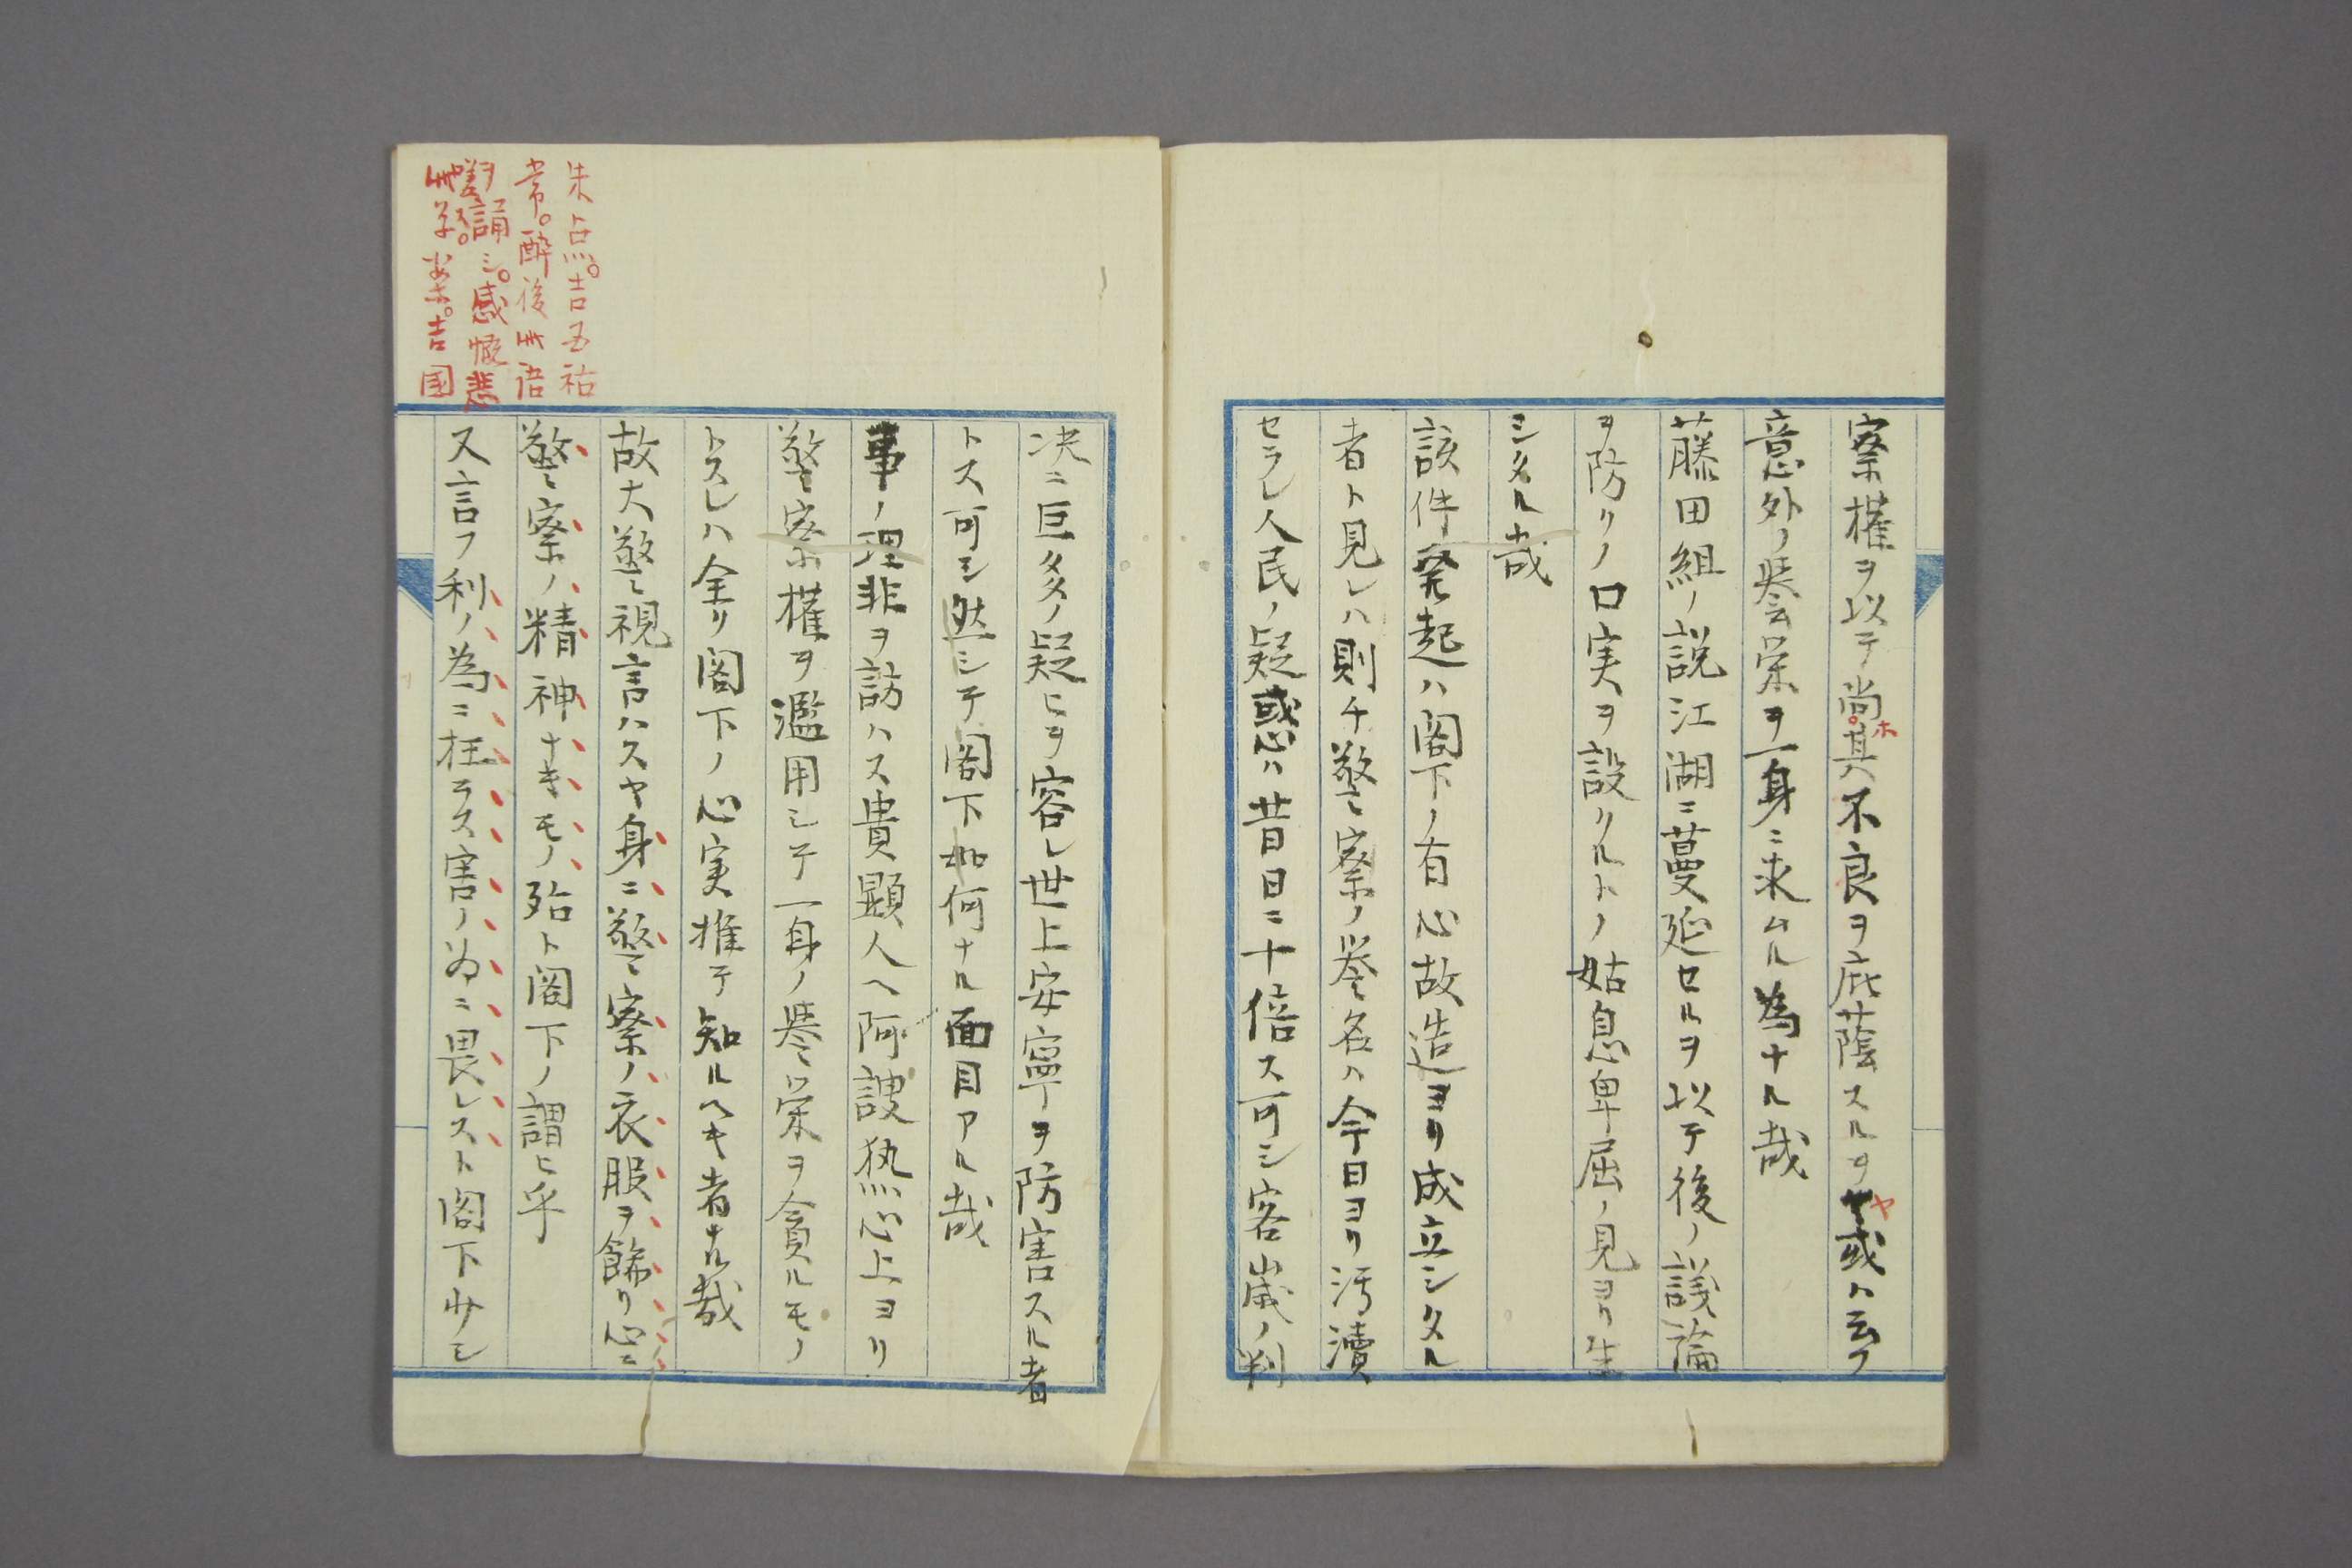 察権ヲ以テ尚ホ其不良ヲ庇蔭スルヲヤ或ハ云フ
意外ノ誉栄ヲ一身ニ求ムル為ナル哉
藤田組ノ説江湖ニ蔓延セルヲ以テ後ノ議論
ヲ防クノ口実ヲ設クルトノ姑息卑屈ノ見ヨリ生
シタル哉
該件発起ハ閣下ノ有心故造ヨリ成立シタル
者ト見レハ則チ警察ノ誉名ハ今日ヨリ汚瀆
セラレ人民ノ疑惑ハ昔日ニ十倍ス可シ客歳ノ判
決ニ巨多ノ疑ヒヲ容レ世上安寧ヲ防害スル者
トス可シ然シテ閣下如何ナル面目アル哉
事ノ理非ヲ訪ハス貴顕人ヘ阿諛熱心上ヨリ
警察権ヲ濫用シテ一身ノ誉栄ヲ貪ルモノ
トスレハ全ク閣下ノ心実推テ知ルヘキ者ナル哉
故大警視言ハスヤ身ニ警察ノ衣服ヲ飾リ心ニ
警察ノ精神ナキモノ殆ト閣下ノ謂ヒ乎
又言フ利ノ為ニ枉ラス害ノ為ニ畏レスト閣下少シ
朱点。吉五祐
常。酔後此語
ヲ誦シ。感慨悲
此案。吉国